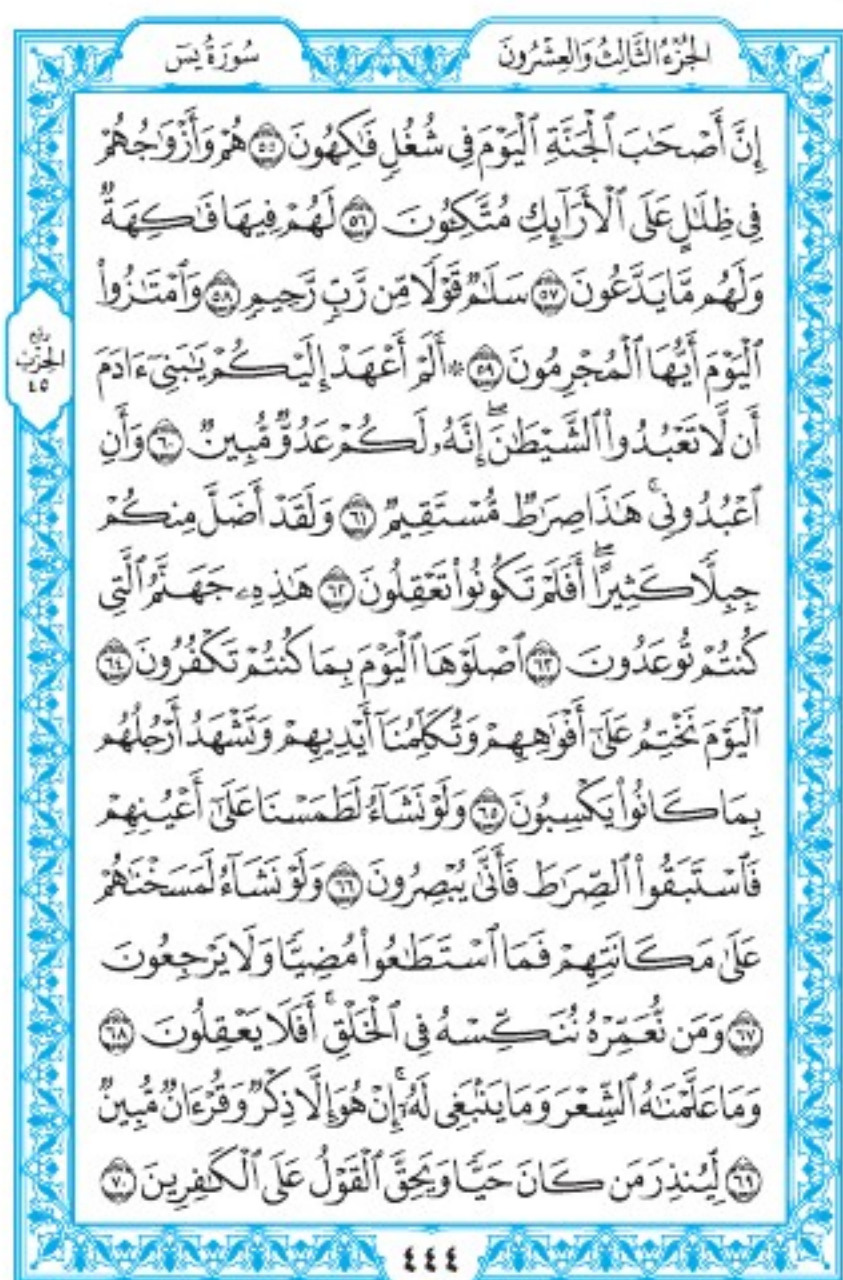 الجُزْءُ الثَّالِثُ وَالعِشْرُونَ
سُورَةُ يسٓ
إِنَّ أَصْحَٰبَ ٱلْجَنَّةِ ٱلْيَوْمَ فِى شُغُلٍ فَٰكِهُونَ ٥٥ هُمْ وَأَزْوَٰجُهُمْ
فِى ظِلَٰلٍ عَلَى ٱلْأَرَآئِكِ مُتَّكِـُٔونَ ٥٦ لَهُمْ فِيهَا فَٰكِهَةٌ
وَلَهُم مَّا يَدَّعُونَ ٥٧ سَلَٰمٌ قَوْلًا مِّن رَّبٍّ رَّحِيمٍ ٥٨ وَٱمْتَٰزُوا۟
ٱلْيَوْمَ أَيُّهَا ٱلْمُجْرِمُونَ ٥٩ ۞ أَلَمْ أَعْهَدْ إِلَيْكُمْ يَٰبَنِىٓ ءَادَمَ
أَن لَّا تَعْبُدُوا۟ ٱلشَّيْطَٰنَ ۖ إِنَّهُۥ لَكُمْ عَدُوٌّ مُّبِينٌ ٦٠ وَأَنِ
ٱعْبُدُونِى ۚ هَٰذَا صِرَٰطٌ مُّسْتَقِيمٌ ٦١ وَلَقَدْ أَضَلَّ مِنكُمْ
جِبِلًّا كَثِيرًا ۖ أَفَلَمْ تَكُونُوا۟ تَعْقِلُونَ ٦٢ هَٰذِهِۦ جَهَنَّمُ ٱلَّتِى
كُنتُمْ تُوعَدُونَ ٦٣ ٱصْلَوْهَا ٱلْيَوْمَ بِمَا كُنتُمْ تَكْفُرُونَ ٦٤
ٱلْيَوْمَ نَخْتِمُ عَلَىٰٓ أَفْوَٰهِهِمْ وَتُكَلِّمُنَآ أَيْدِيهِمْ وَتَشْهَدُ أَرْجُلُهُم
بِمَا كَانُوا۟ يَكْسِبُونَ ٦٥ وَلَوْ نَشَآءُ لَطَمَسْنَا عَلَىٰٓ أَعْيُنِهِمْ
فَٱسْتَبَقُوا۟ ٱلصِّرَٰطَ فَأَنَّىٰ يُبْصِرُونَ ٦٦ وَلَوْ نَشَآءُ لَمَسَخْنَٰهُمْ
عَلَىٰ مَكَانَتِهِمْ فَمَا ٱسْتَطَٰعُوا۟ مُضِيًّا وَلَا يَرْجِعُونَ
٦٧ وَمَن نُّعَمِّرْهُ نُنَكِّسْهُ فِى ٱلْخَلْقِ ۚ أَفَلَا يَعْقِلُونَ ٦٨
وَمَا عَلَّمْنَٰهُ ٱلشِّعْرَ وَمَا يَنۢبَغِى لَهُۥٓ ۚ إِنْ هُوَ إِلَّا ذِكْرٌ وَقُرْءَانٌ مُّبِينٌ
٦٩ لِّيُنذِرَ مَن كَانَ حَيًّا وَيَحِقَّ ٱلْقَوْلُ عَلَى ٱلْكَٰفِرِينَ ٧٠
ربع
الحزب
٤٥
٤٤٤